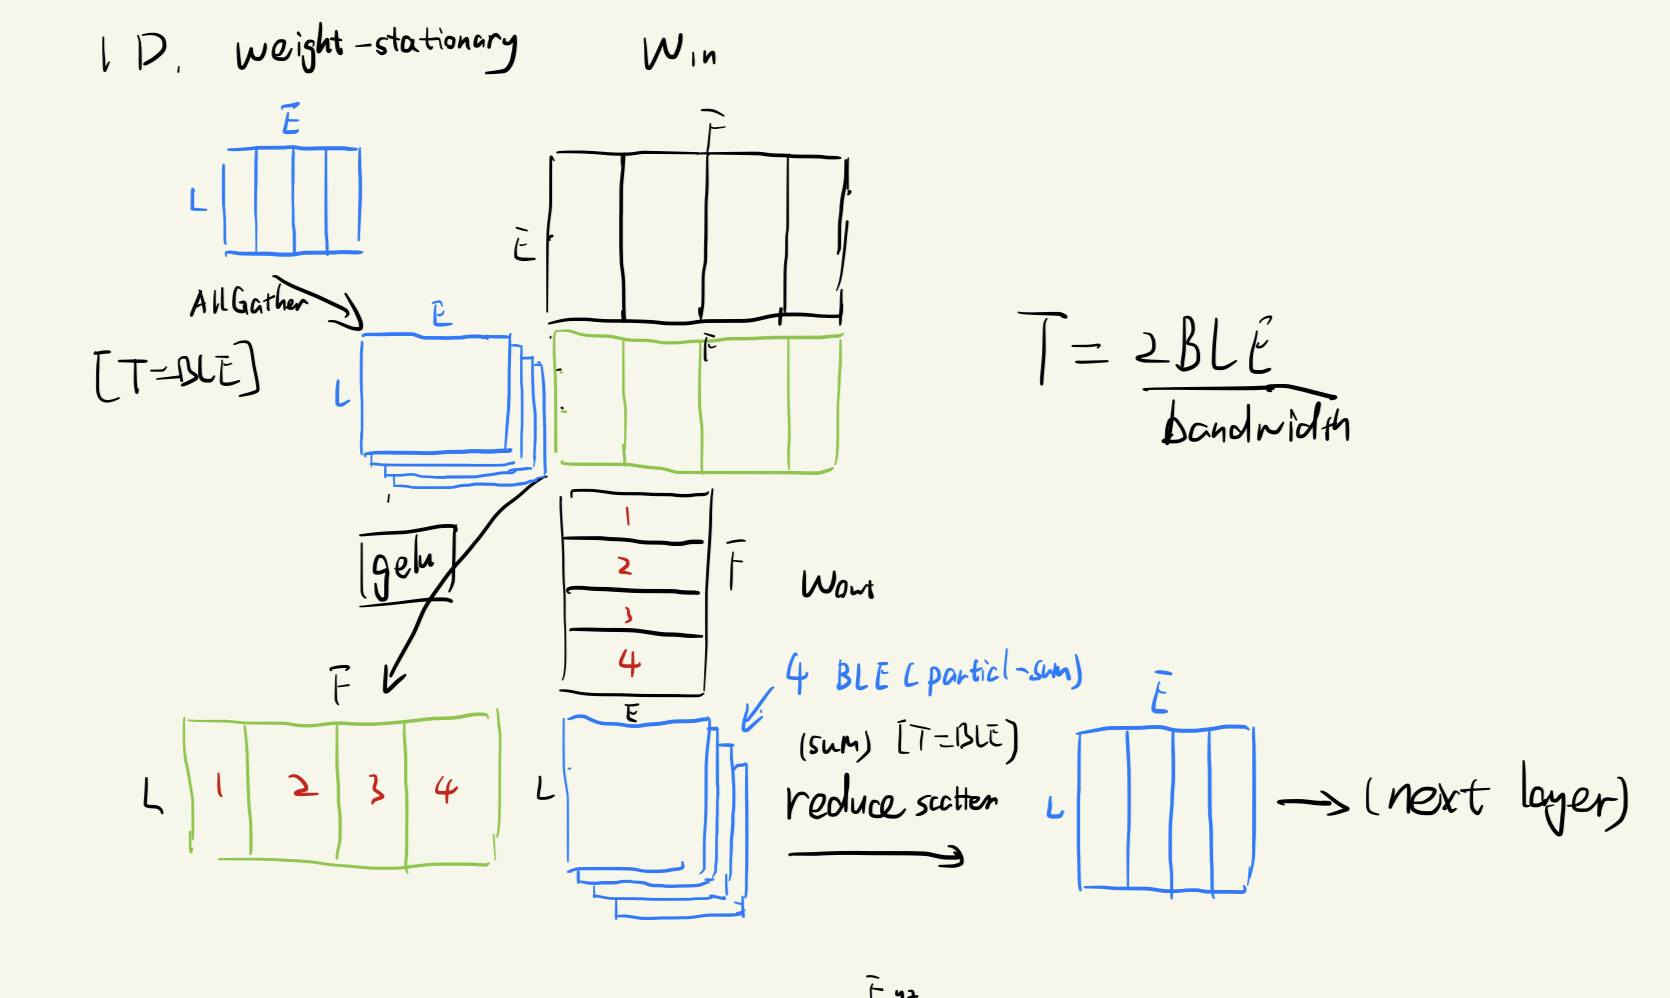 1D. weight-stationary
Win
E
F
L
E
AllGather
[T=BLE]
E
L
F
T = 2BLE
bandwidth
gelu
1
2
3
4
F
Wout
F
4 BLE (partial-sum)
E
L
1 2 3 4
L
(sum) [T=BLE]
reduce scatter
E
L
(next layer)